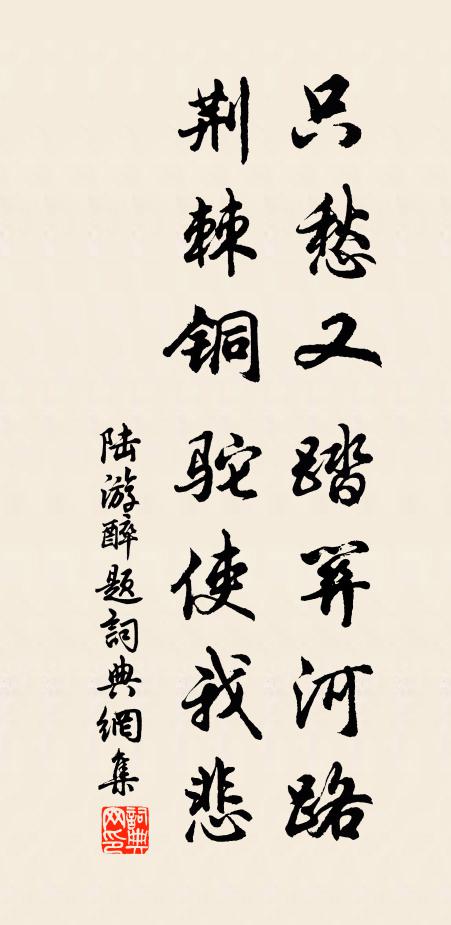 只愁又踏關河路
荆棘铜驼使我悲
陆游醉题詞典網集
詞典
网印